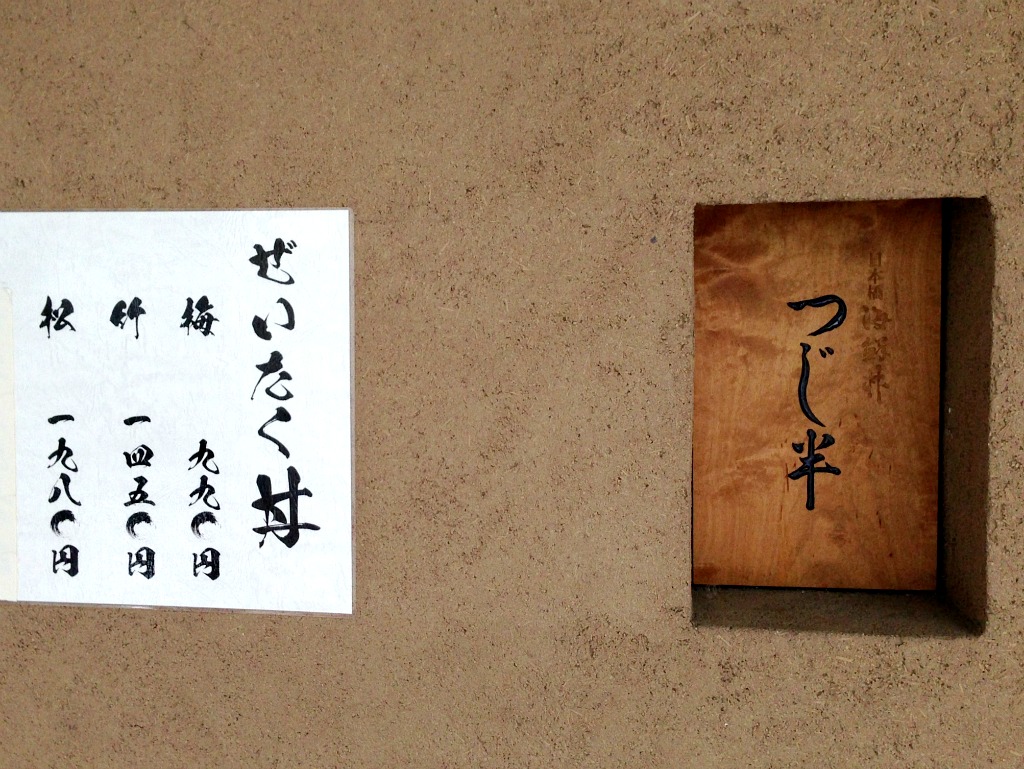 日本橋 海鮮丼
つじ半
ぜいたく丼
梅 九九〇円
竹 一四五〇円
松 一九八〇円